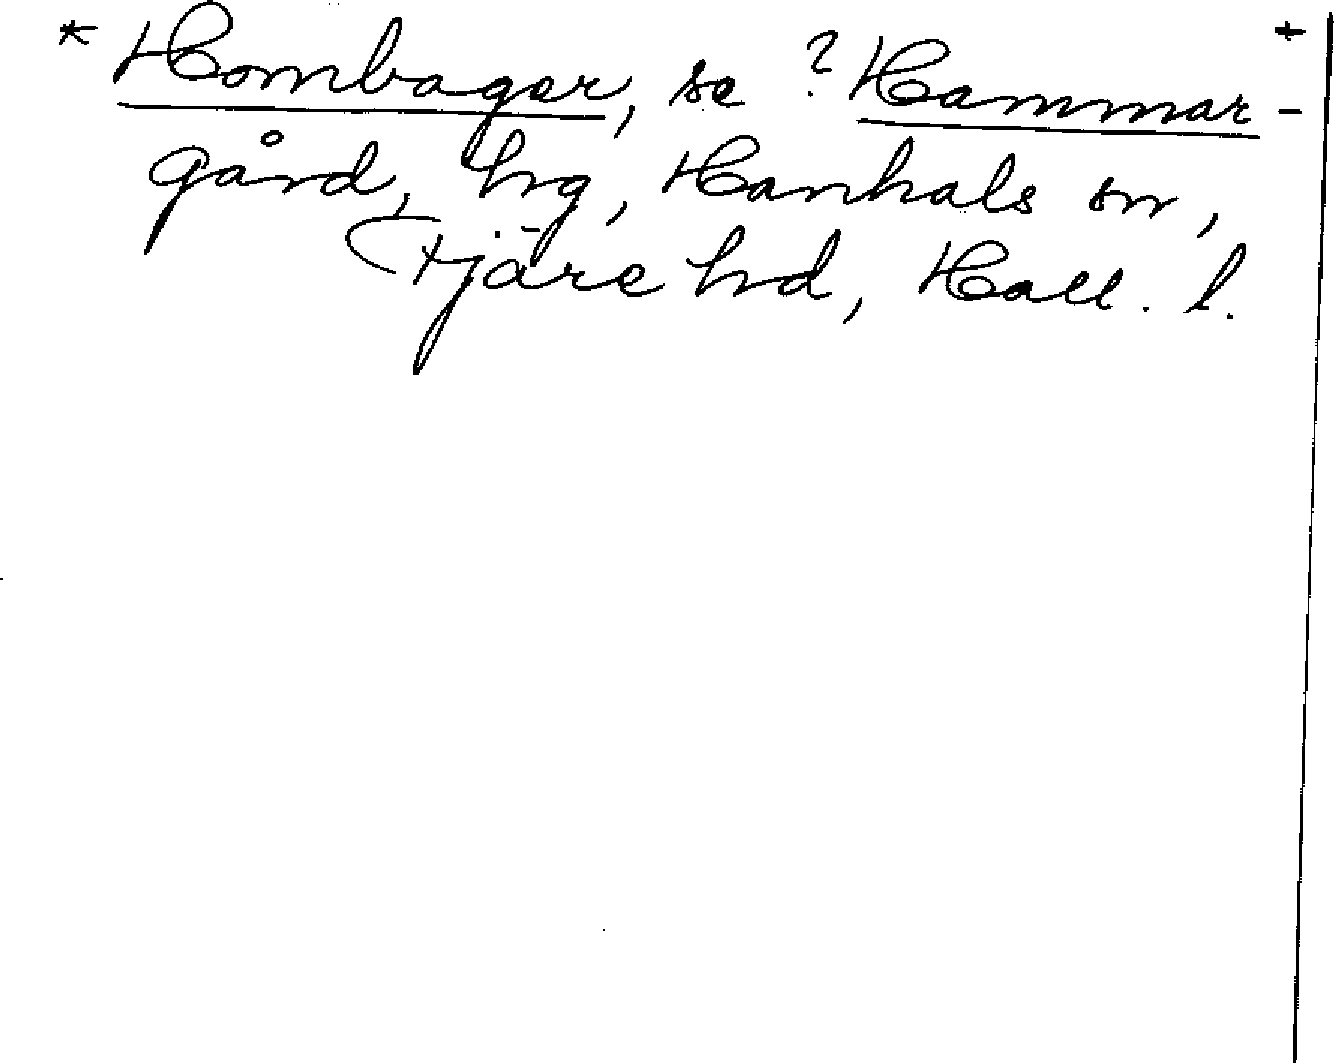 * Hombager, se ? Hammar- +
gård, hg, Hanhals sn,
Fjäre hd, Hall. l.